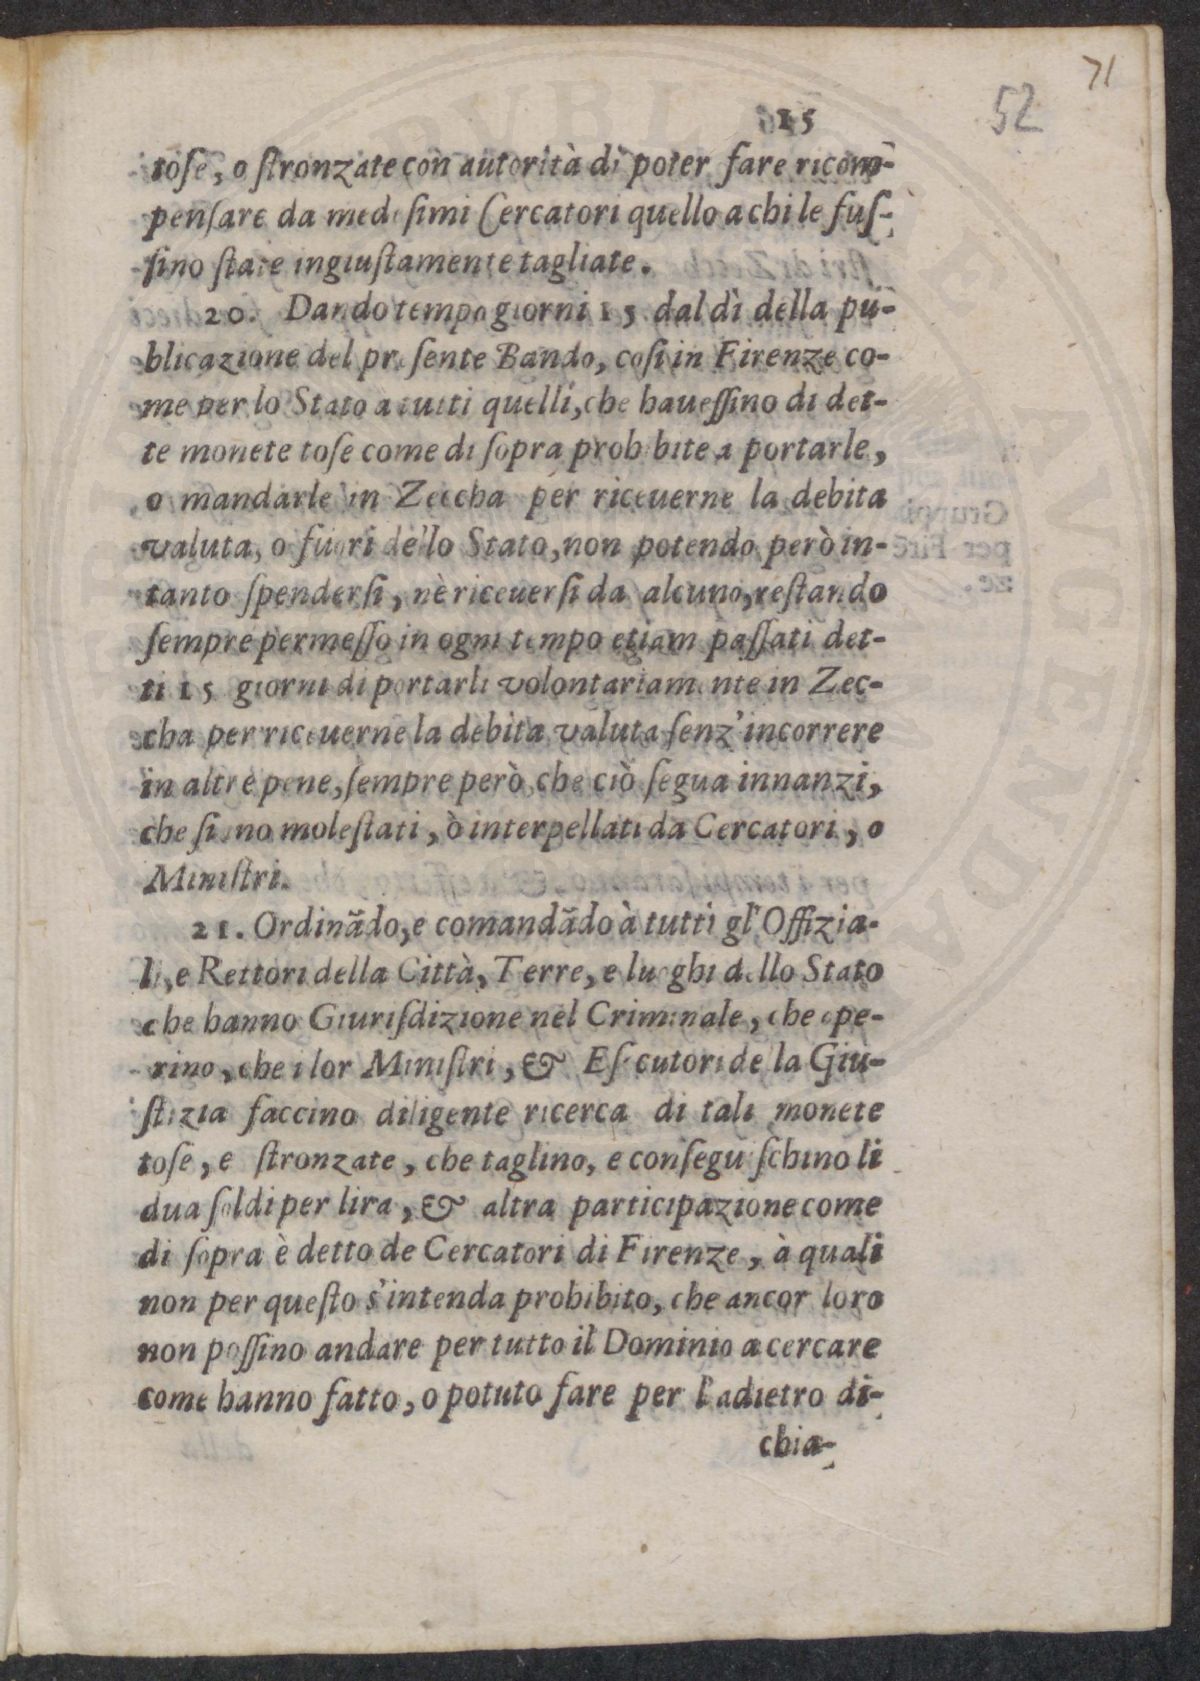 71
52
15
tose, o stronzate con autorità di poter fare ricom-
pensare da medesimi Cercatori quello a chi le fus-
sino state ingiustamente tagliate.
20. Dando tempo giorni 15 dal dì della pu-
blicazione del presente Bando, cosi in Firenze co-
me per lo Stato a tutti quelli, che hauessino di det-
te monete tose come di sopra prohibite a portarle,
o mandarle in Zeccha per riceuerne la debita
valuta, o fuori dello Stato, non potendo però in-
tanto spendersi, nè riceuersi da alcuno, restando
sempre permesso in ogni tempo etiam passati det-
ti 15 giorni di portarli volontariamente in Zec-
cha per riceuerne la debita valuta senz'incorrere
in altre pene, sempre però, che ciò segua innanzi,
che sieno molestati, ò interpellati da Cercatori, o
Ministri.
21. Ordinãdo, e comandãdo à tutti gl'Offizia-
li, e Rettori della Città, Terre, e luoghi dello Stato
che hanno Giurisdizione nel Criminale, che ope-
rino, che i lor Ministri, & Esecutori de la Giu-
stizia faccino diligente ricerca di tali monete
tose, e stronzate, che taglino, e conseguischino li
dua soldi per lira, & altra participazione come
di sopra è detto de Cercatori di Firenze, à quali
non per questo s'intenda prohibito, che ancor loro
non possino andare per tutto il Dominio a cercare
come hanno fatto, o potuto fare per l'adietro di-
chia-